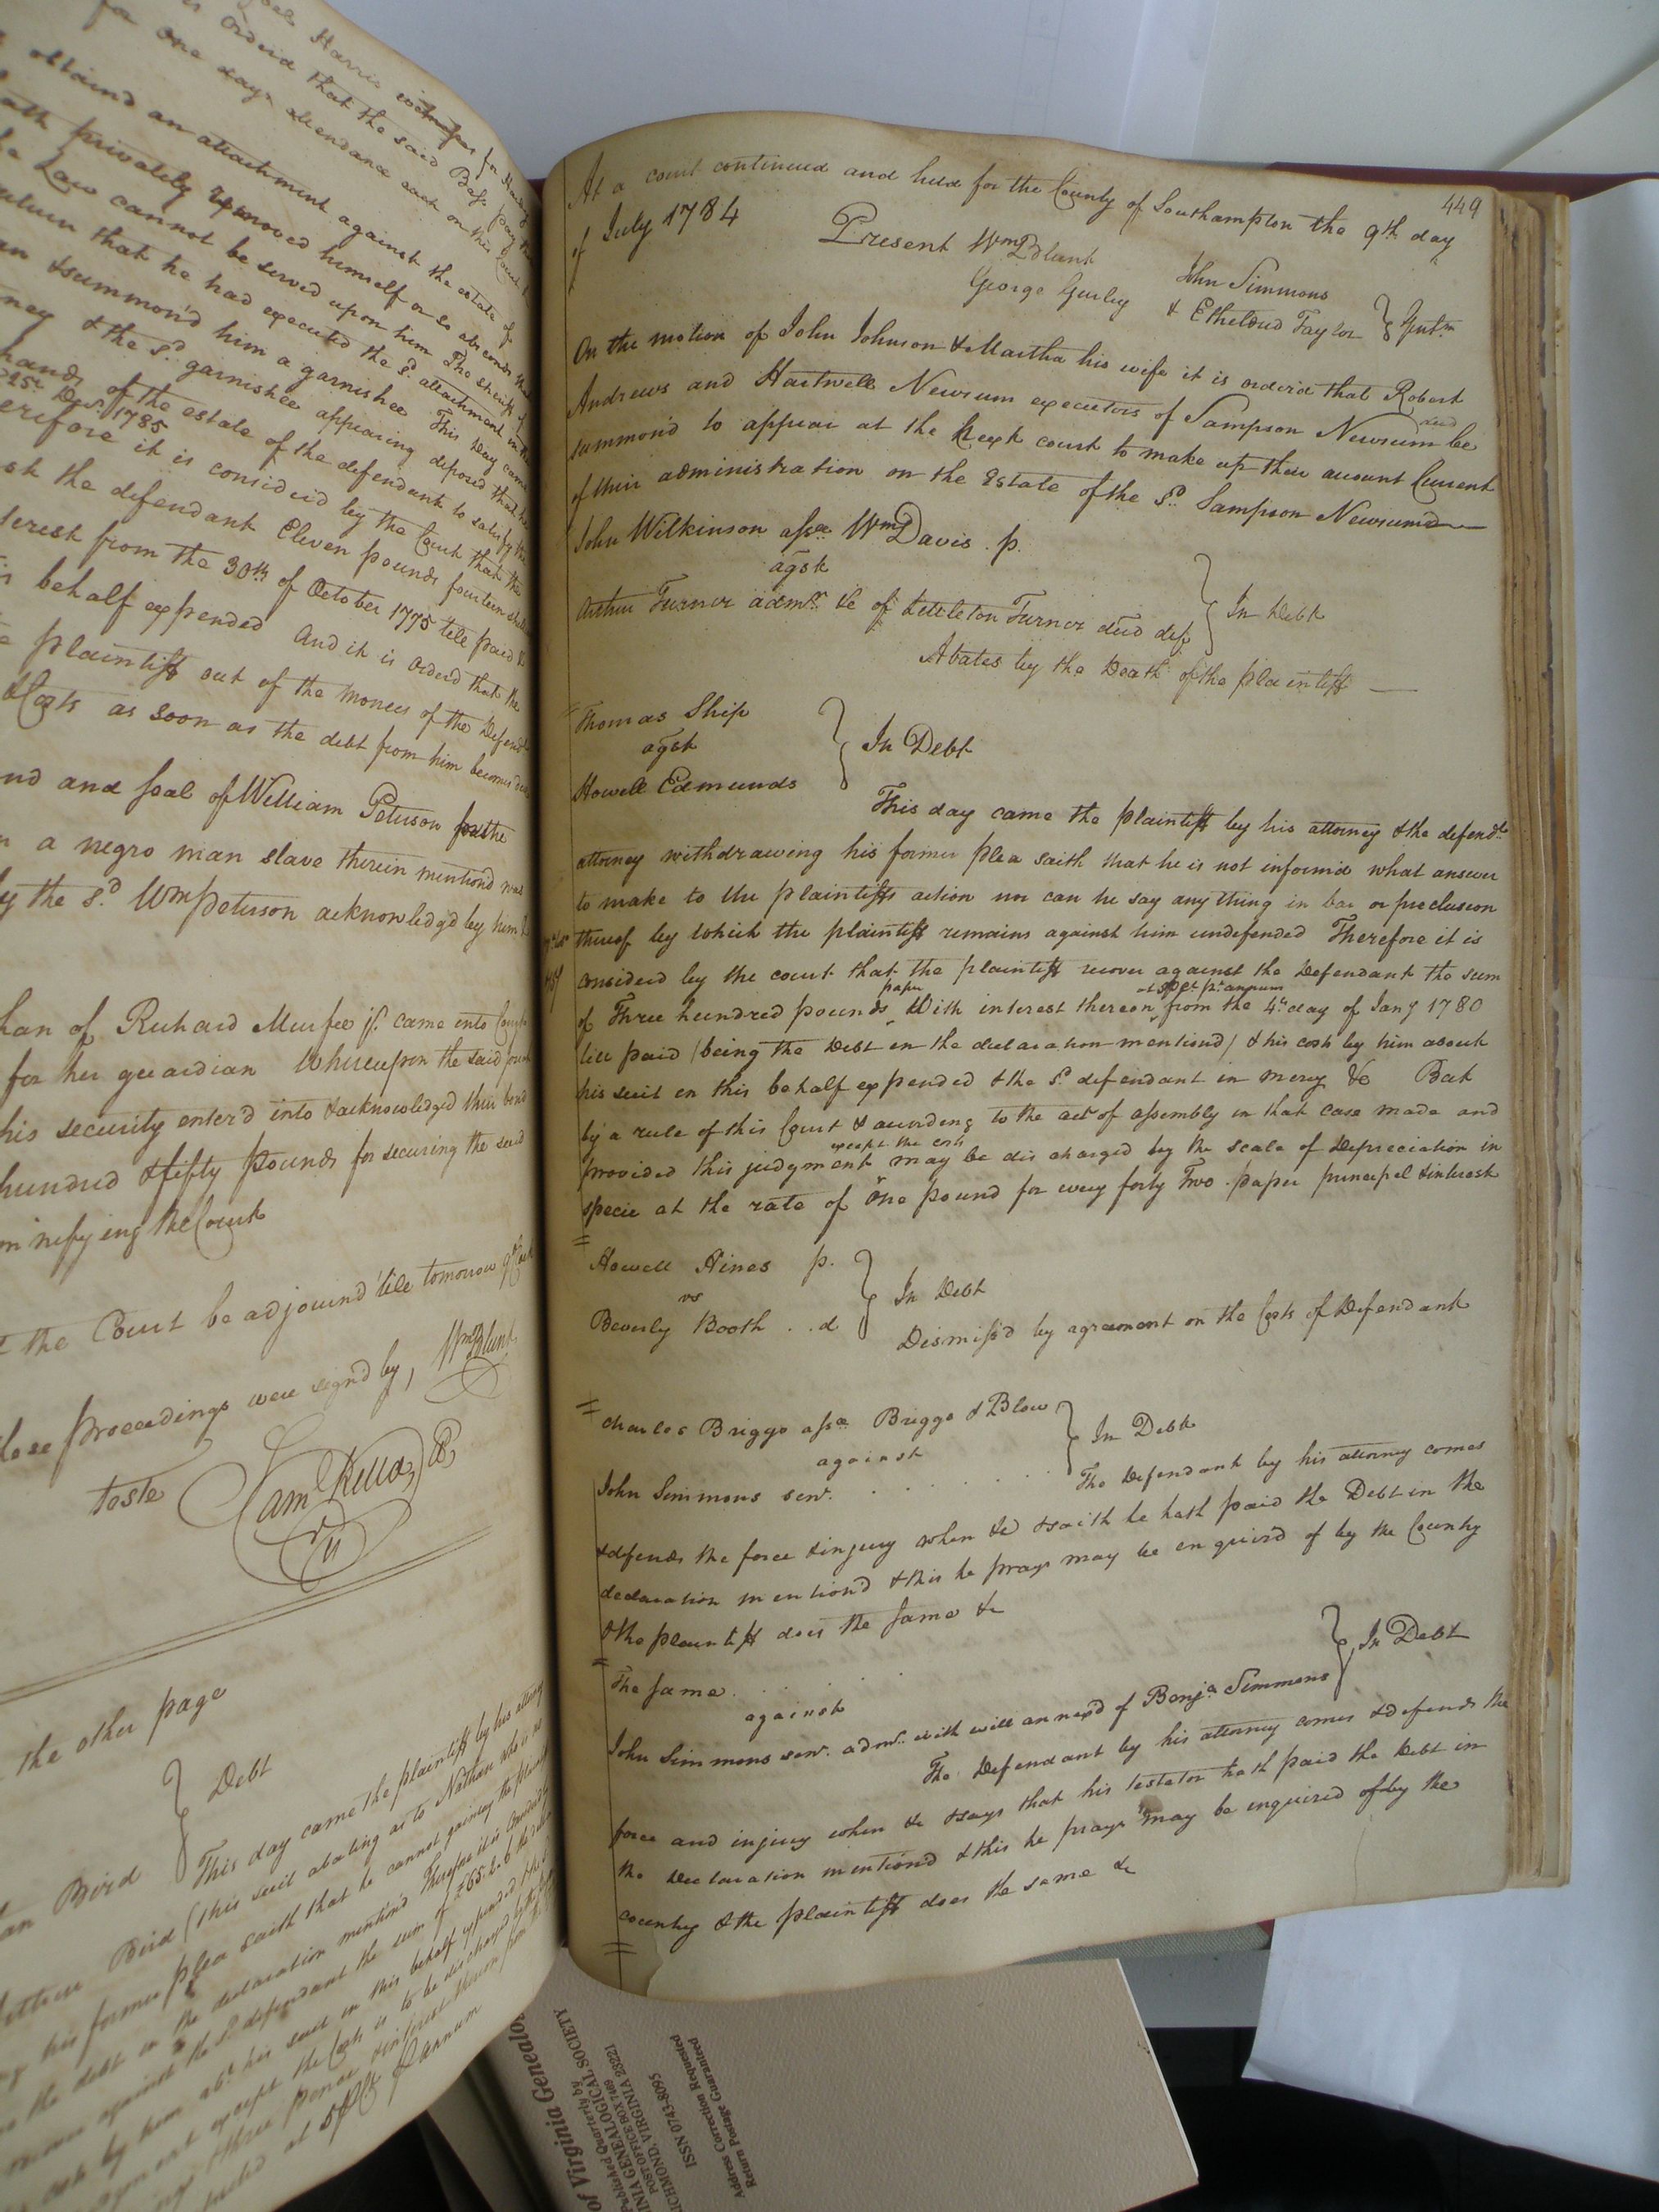 Harris witnesses for
is Orderd that the said Bass pay the
for one days attendance each on this Court
obtaind an attachment against the estate of
hath privately removed himself or so absconds that
the Law cannot be served upon him The sheriff of
return that he had executed the sd. attachment in the
an & summond him a garnishee This day came
ney & the sd. garnishee appearing deposed that he
hands of the estate of the defendant to satisfy the
25th Decr. 1785
erefore it is considerd by the Court that the
st the defendant Eleven pounds fourteen shill
terest from the 30th of October 1775 till paid &
is behalf expended And it is Orderd that the
e plaintiff out of the monies of the Defendt
& Costs as soon as the debt from him becomes due
nd and seal of William Peterson for the
n a negro man slave therein mentiond was
by the sd. Wm Peterson acknowledgd by him
han of Richard Murfee jr. came into Court
for her guardian Whereupon the said
his security enterd into & acknowledged their bond
hundred & fifty pounds for securing the said
mnifying the Court
t the Court be adjournd till tomorrow 9 Clock
These proceedings were signd by, Wm Blunt
teste Saml Kello
the other page
Bird } Debt
This day came the plaintiff by his attorney
Bird (this suit abating as to Nathan who is no
his former plea saith that he cannot gainsay the plaintiffs
the debt in the declaration mentiond Therefore it is considerd
recover against the sd. defendant the sum of £65.2.6 the
costs by him abt. his suit in this behalf expended
except the Costs is to be discharged by the
three pence & interest thereon from
at 5 pCt p annum
449
At a court continued and held for the County of Southampton the 9th day
of July 1784
Present Wm Blunt John Simmons
George Gurley & Etheldred Taylor } Gentn
On the motion of John Johnson & Martha his wife it is orderd that Robert
Andrews and Hartwell Newsum executors of Sampson Newsum decd be
summond to appear at the Next court to make up their account Current
of their administration on the Estate of the sd. Sampson Newsum
John Wilkinson assee Wm Davis . p.
agst
Arthur Turner admr. &c of Littleton Turner decd def } In Debt
Abates by the Death of the plaintiff
Thomas Ship
agst } In Debt
Howell Edmunds
This day came the plaintiff by his attorney & the defendts
attorney withdrawing his former plea saith that he is not informd what answer
to make to the plaintiffs action nor can he say any thing in bar or preclusion
thereof by which the plaintiff remains against him undefended Therefore it is
considerd by the court that the plaintiff recover against the Defendant the sum
paper at 5 pCt. pr. annum
of Three hundred pounds With interest thereon from the 4th day of Jany 1780
till paid (being the Debt in the declaration mentiond) & his costs by him about
his suit in this behalf expended & the sd. defendant in mercy &c But
by a rule of this Court & according to the act of assembly in that case made and
except the costs
provided this judgment may be discharged by the scale of Depreciation in
specie at the rate of One pound for every forty Two . paper principal & interest
Howell Hines p.
vs } In Debt
Beverly Booth . . d
Dismissd by agreement on the Costs of Defendant
Charles Briggs assee Briggs & Blow
against } In Debt
John Simmons senr.
The Defendant by his attorney comes
& defends the force & injury when &c & saith he hath paid the Debt in the
declaration mentiond & this he prays may be enquird of by the Country
& the plaintiff does the same &c
The same . . .
against } In Debt
John Simmons senr. admr. with will annexd of Benja. Simmons
The Defendant by his attorney comes & defends the
force and injury when &c & says that his testator hath paid the Debt in
the Declaration mentiond & this he prays may be enquired of by the
country & the plaintiff does the same &c
of Virginia Genealo
Published Quarterly by
INIA GENEALOGICAL SOCIETY
POST OFFICE BOX 7469
ICHMOND, VIRGINIA 23221
ISSN 0743-8095
Address Correction Requested
Return Postage Guaranteed